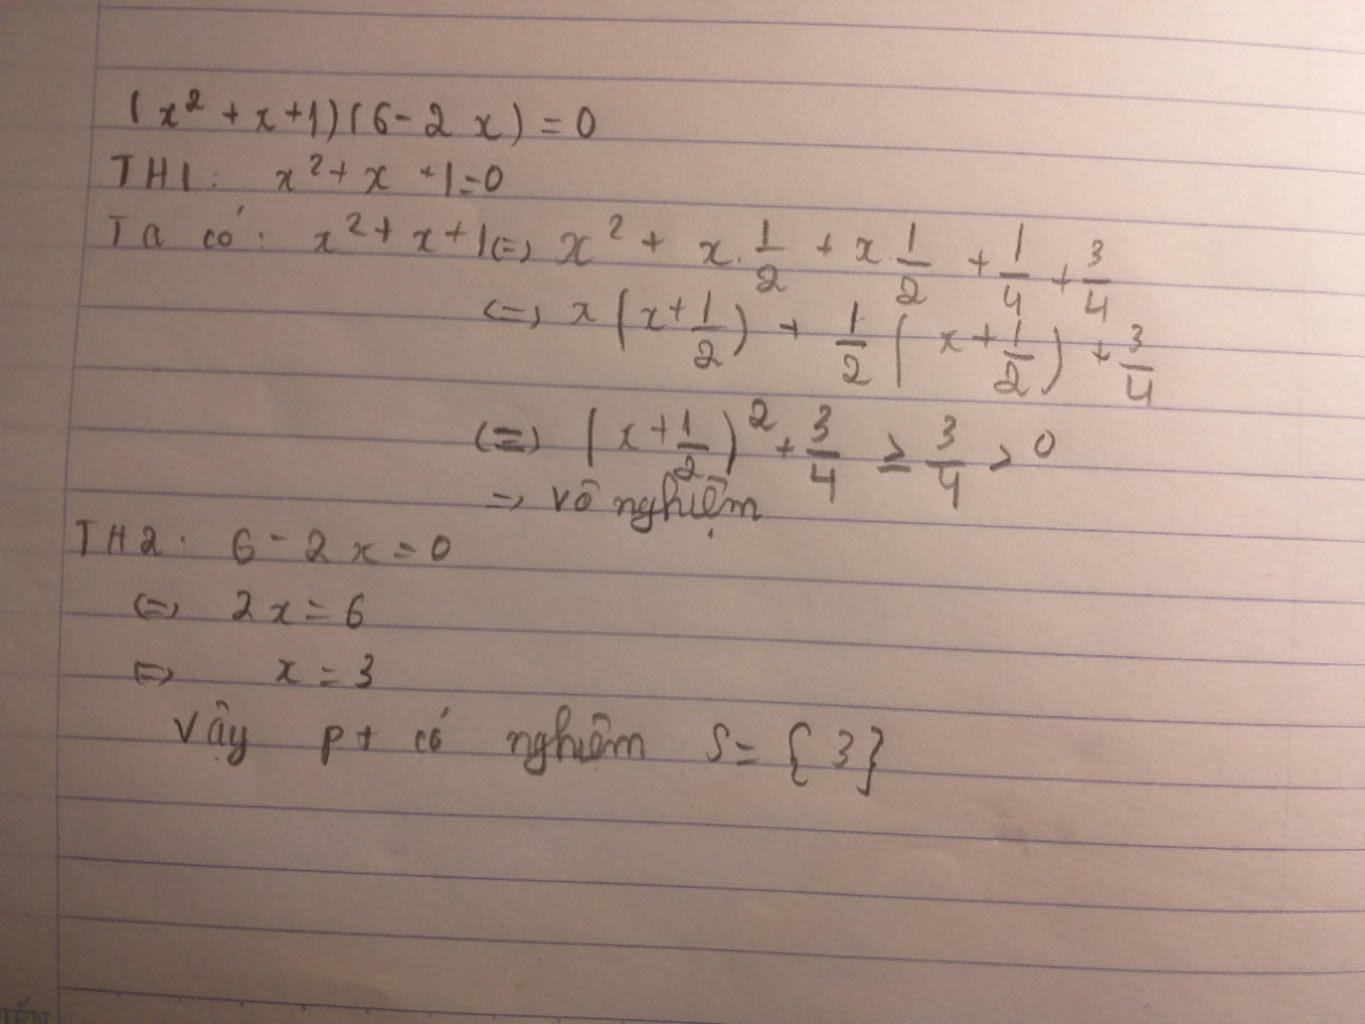 (x² + x + 1)(6 - 2x) = 0
TH1: x² + x + 1 = 0
Ta có: x² + x + 1 <=> x² + x.1/2 + x.1/2 + 1/4 + 3/4
<=> x(x + 1/2) + 1/2(x + 1/2) + 3/4
<=> (x + 1/2)² + 3/4 ≥ 3/4 > 0
=> vô nghiệm
TH2: 6 - 2x = 0
<=> 2x = 6
<=> x = 3
Vậy pt có nghiêm S = {3}